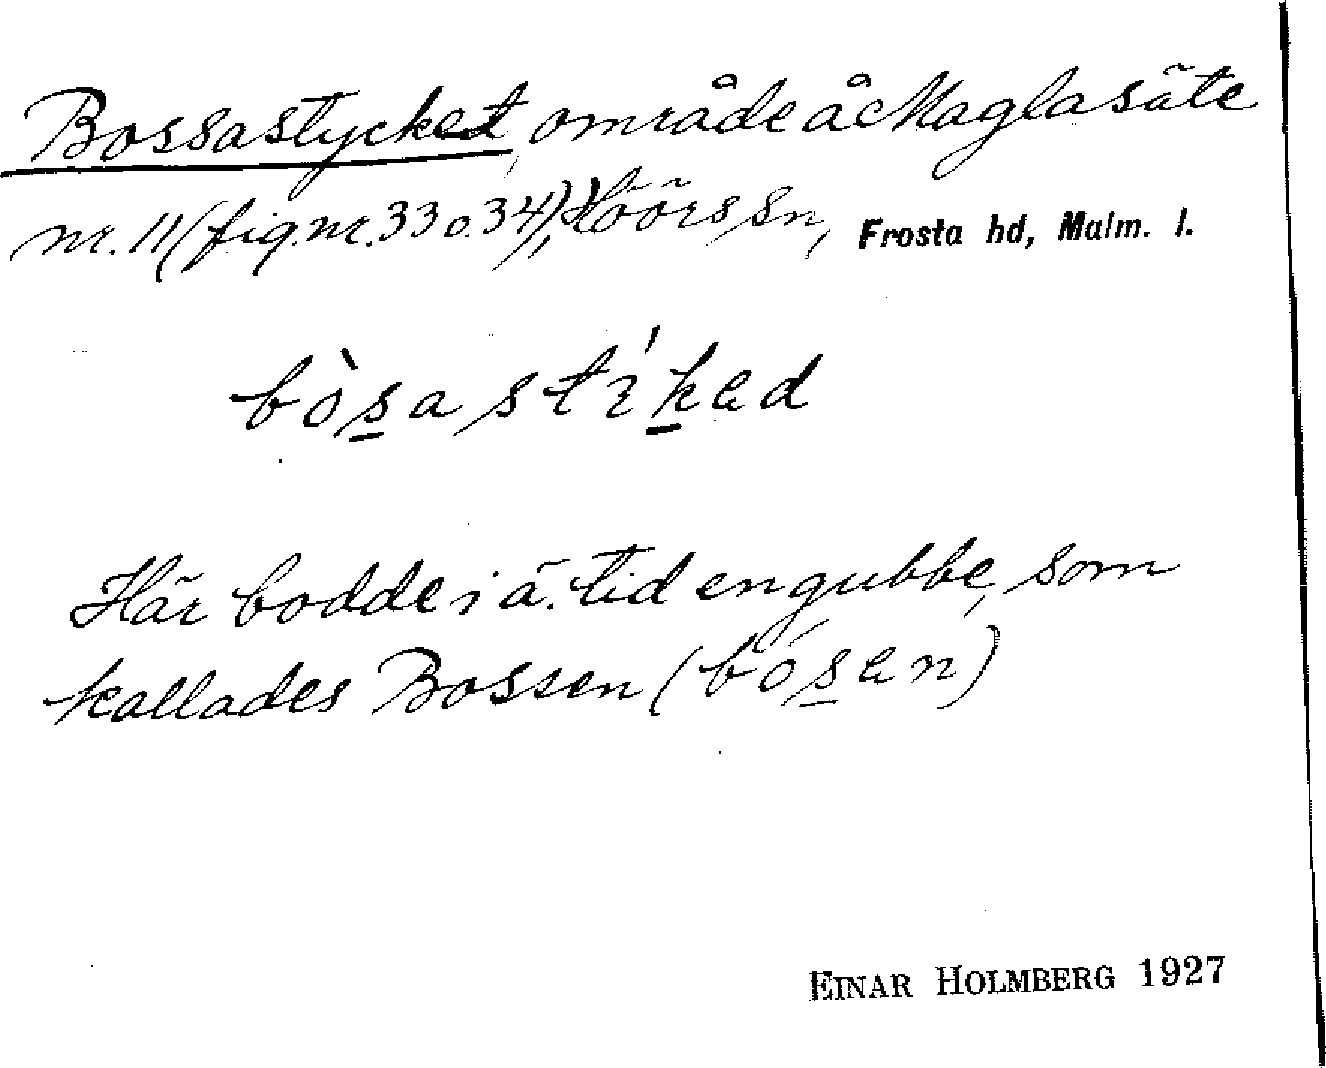 Bossastycket, område å Maglasäte
nr. 11 (fig. nr. 33 o. 34), Höörs sn, Frosta hd, Malm. l.
bòs̲a stík̲ed
Här bodde i ä. tid en gubbe, som
kallades Bossen (bós̲en)
EINAR HOLMBERG 1927